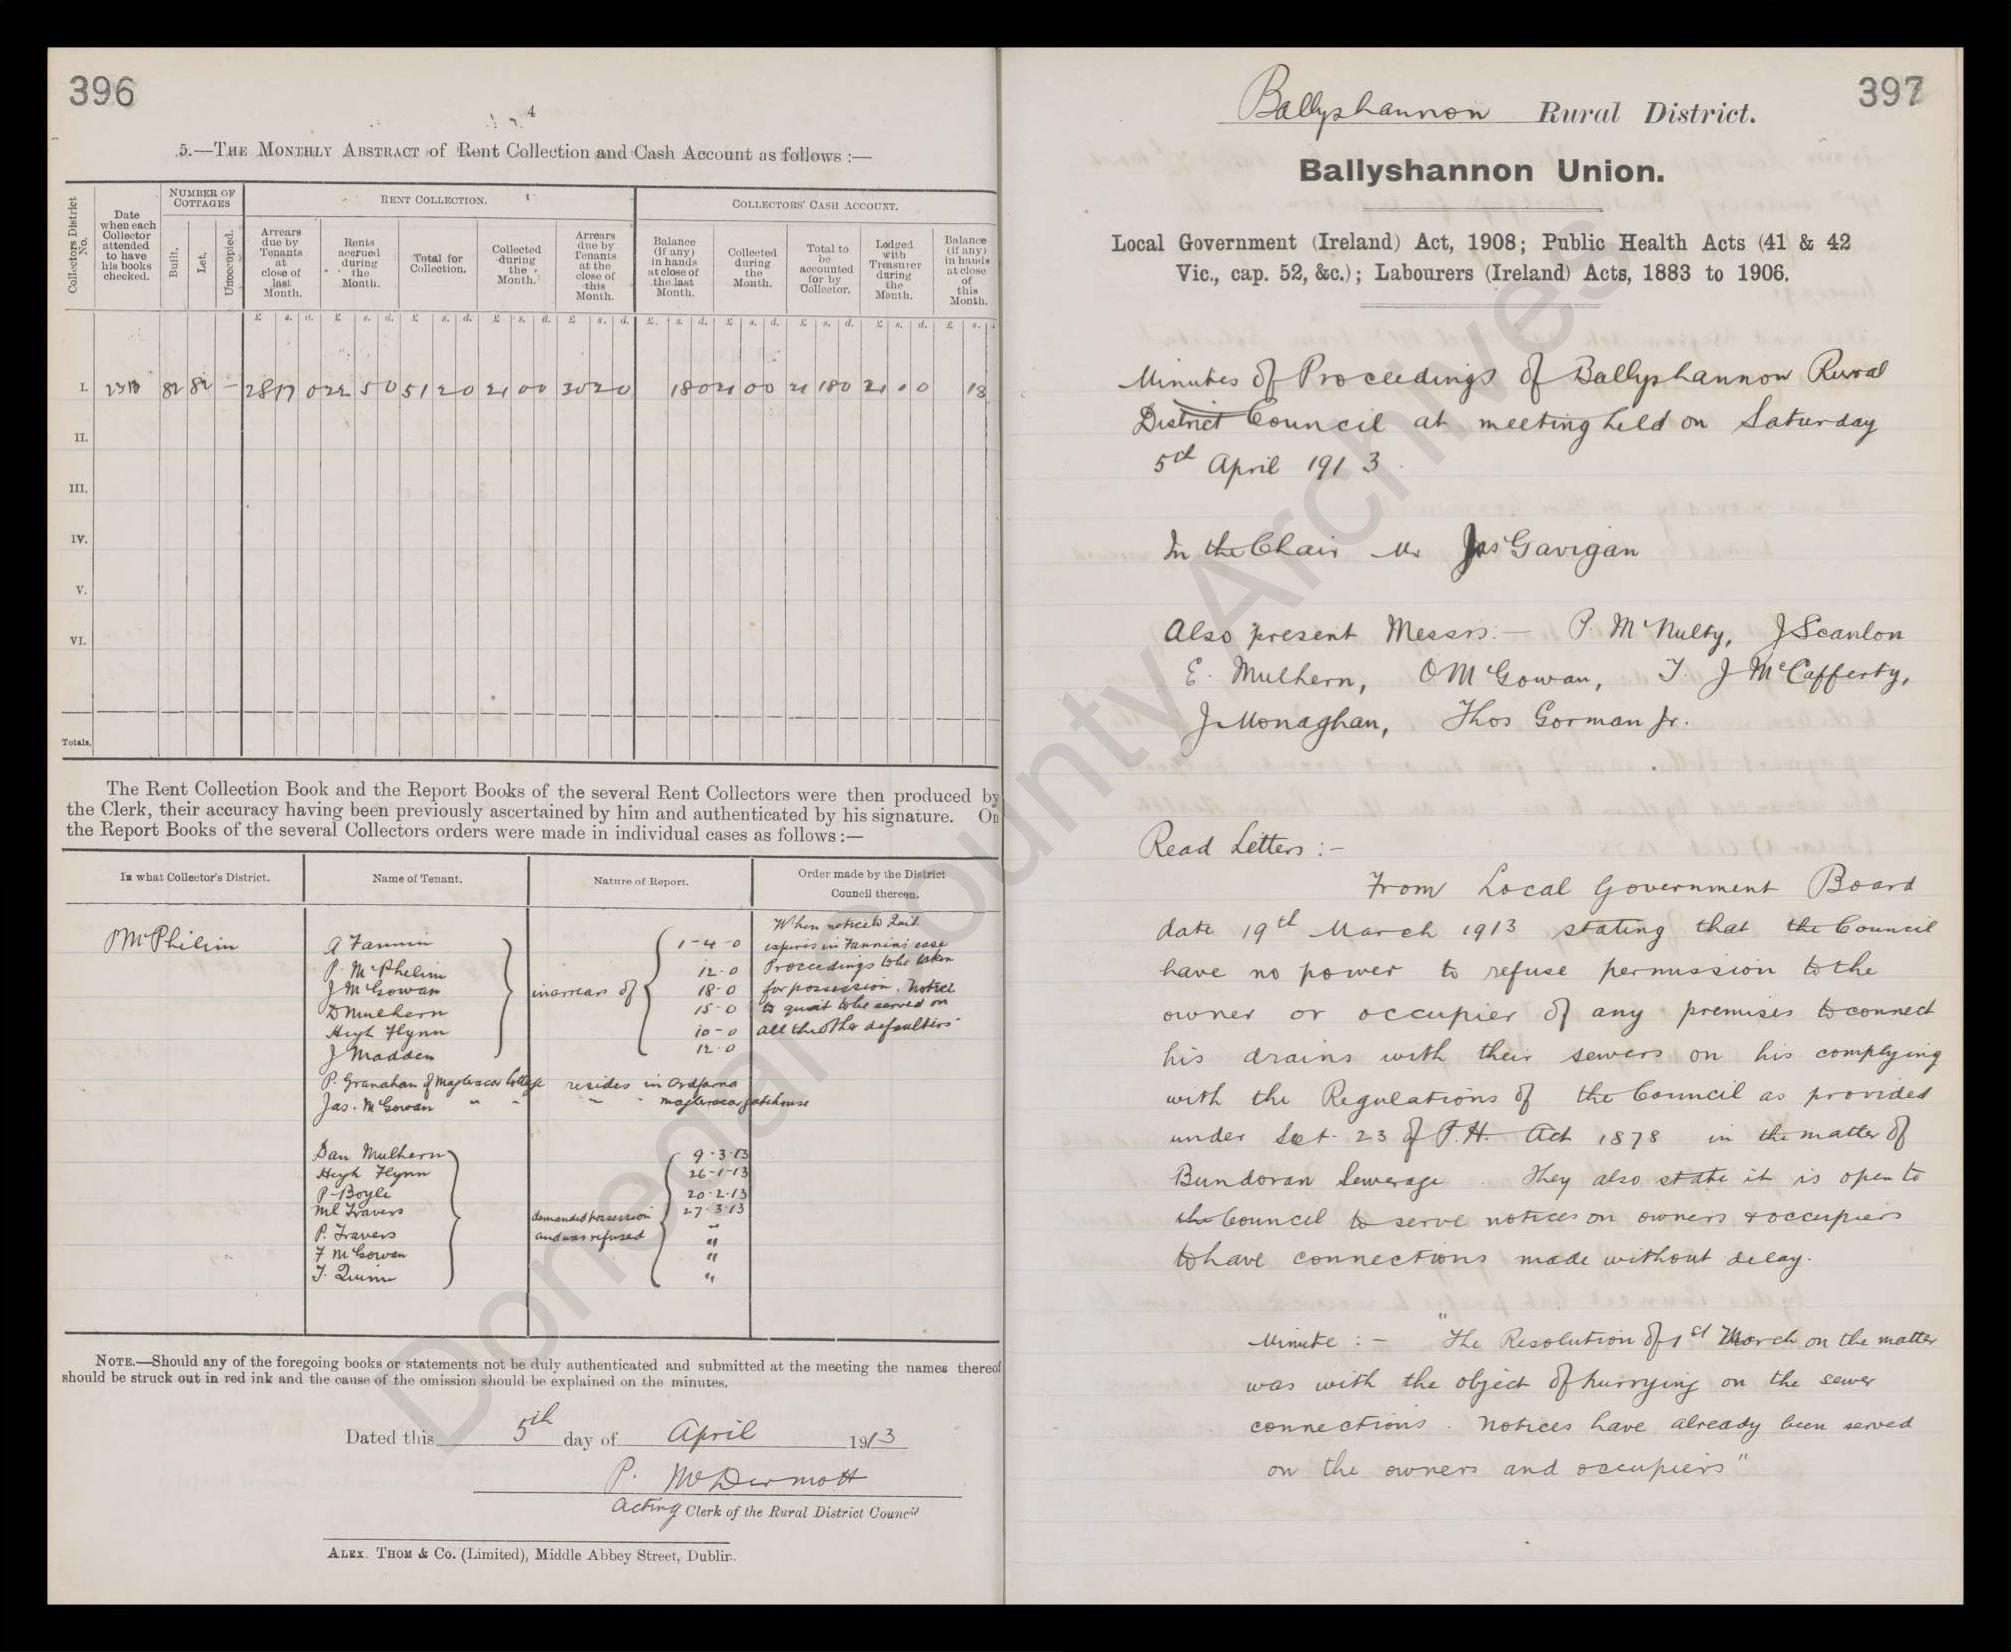 396
4
5.—THE MONTHLY ABSTRACT of Rent Collection and Cash Account as follows :—
Collectors District No.
Date when each Collector attended to have his books checked.
NUMBER OF COTTAGES
Built.
Let.
Unoccupied.
RENT COLLECTION.
Arrears due by Tenants at close of last Month.
Rents accrued during the Month.
Total for Collection.
Collected during the Month.
Arrears due by Tenants at the close of this Month.
COLLECTORS' CASH ACCOUNT.
Balance (if any) in hands at close of the last Month.
Collected during the Month.
Total to be accounted for by Collector.
Lodged with Treasurer during the Month.
Balance (if any) in hands at close of this Month.
£ s. d. £ s. d. £ s. d. £ s. d. £ s. d. £ s. d. £ s. d. £ s. d. £ s. d. £ s.
I. 82 82 — 28 17 0 22 5 0 51 2 0 21 0 0 30 2 0 18 0 21 0 0 21 18 0 21 0 0 18
II.
III.
IV.
V.
VI.
Totals.
The Rent Collection Book and the Report Books of the several Rent Collectors were then produced by
the Clerk, their accuracy having been previously ascertained by him and authenticated by his signature. On
the Report Books of the several Collectors orders were made in individual cases as follows :—
In what Collector's District.
Name of Tenant.
Nature of Report.
Order made by the District Council thereon.
P McPhilim
A Fannin 1-4-0
P. McPhelim 12-0
J McGowan in arrear of 18-0
D Mulhern 15-0
Hugh Flynn 10-0
J Madden 12-0
When notice to Quit
expires in Fannins case
Proceedings to be taken
for possession. Notice
to quit to be served on
all the other defaulters
P. Granahan of Magheracar Cottage resides in Ardfarna
Jas. McGowan " " " " Magheracar gatehouse
Dan Mulhern 9-3-13
Hugh Flynn 26-1-13
P Boyle 20-2-13
Ml Travers demanded possession 27-3-13
P. Travers and was refused "
F McGowan "
T. Quinn "
NOTE.—Should any of the foregoing books or statements not be duly authenticated and submitted at the meeting the names thereof
should be struck out in red ink and the cause of the omission should be explained on the minutes.
Dated this 5th day of April 1913
P. McDermott
Acting Clerk of the Rural District Council
ALEX. THOM & Co. (Limited), Middle Abbey Street, Dublin.
397
Ballyshannon Rural District.
Ballyshannon Union.
Local Government (Ireland) Act, 1908; Public Health Acts (41 & 42
Vic., cap. 52, &c.); Labourers (Ireland) Acts, 1883 to 1906.
Minutes of Proceedings of Ballyshannon Rural
District Council at meeting held on Saturday
5th April 1913.
In the Chair Mr Jas Gavigan
Also present Messrs:— P. McNulty, J Scanlon
E. Mulhern, O McGowan, T. J McCafferty,
J Monaghan, Thos Gorman Jr.
Read Letters :-
From Local Government Board
date 19th March 1913 stating that the Council
have no power to refuse permission to the
owner or occupier of any premises to connect
his drains with their sewers on his complying
with the Regulations of the Council as provided
under Sect. 23 of P.H. Act 1878 in the matter of
Bundoran Sewerage. They also state it is open to
the Council to serve notices on owners & occupiers
to have connections made without delay.
Minute :- "The Resolution of 1st March on the matter
was with the object of hurrying on the sewer
connections. Notices have already been served
on the owners and occupiers"
Donegal County Archives